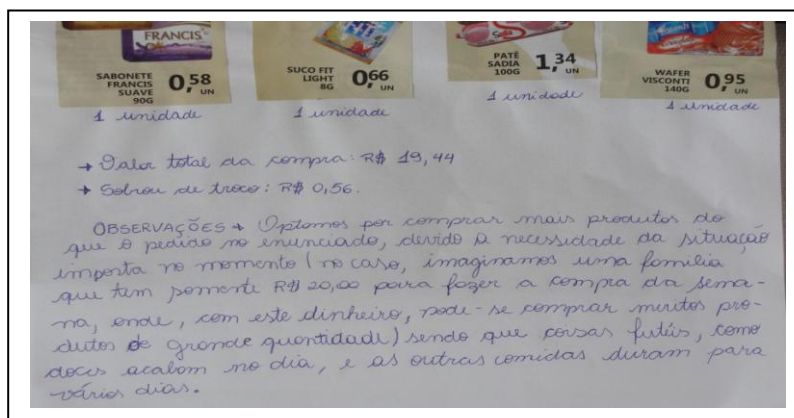 FRANCIS
SABONETE FRANCIS SUAVE 90G 0,58 UN
SUCO FIT LIGHT 8G 0,66 UN
PATÊ SADIA 100G 1,34 UN
WAFER VISCONTI 140G 0,95 UN
1 unidade
1 unidade
1 unidade
1 unidade
→ Valor total da compra: R$ 19,44
→ Sobrou de troco: R$ 0,56.
OBSERVAÇÕES → Optamos por comprar mais produtos do
que o pedido no enunciado, devido a necessidade da situação
imposta no momento (no caso, imaginamos uma família
que tem somente R$ 20,00 para fazer a compra da sema-
na, onde, com este dinheiro, pode-se comprar muitos pro-
dutos de grande quantidade) sendo que coisas futéis, como
doces acabam no dia, e as outras comidas duram para
vários dias.